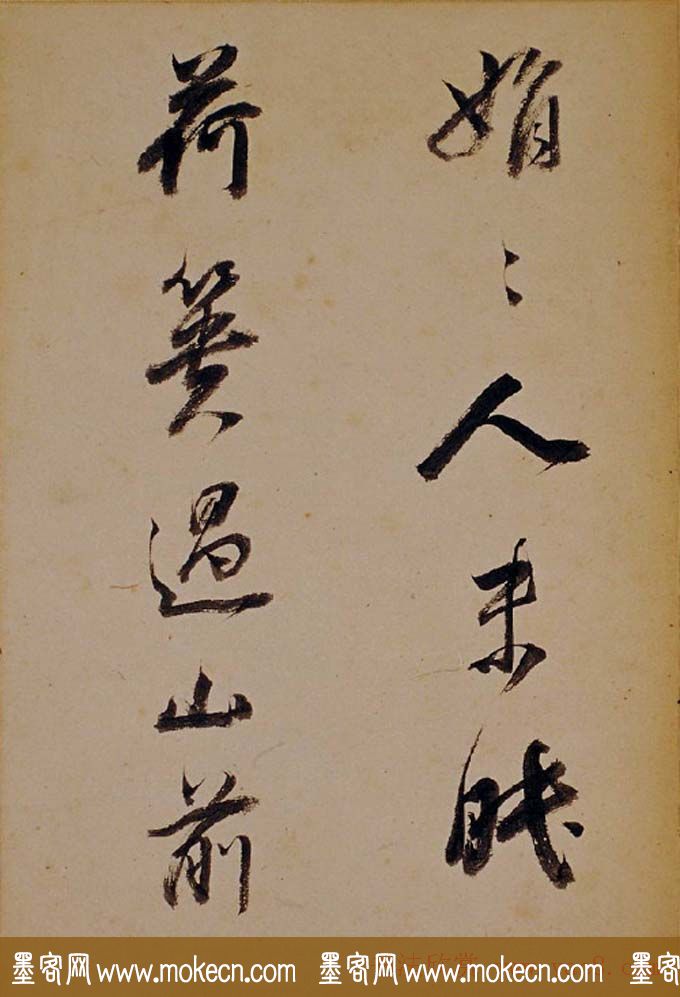 娟〻人未眠
荷簣過山前
墨客网 www.mokecn.com 墨客网 www.mokecn.com